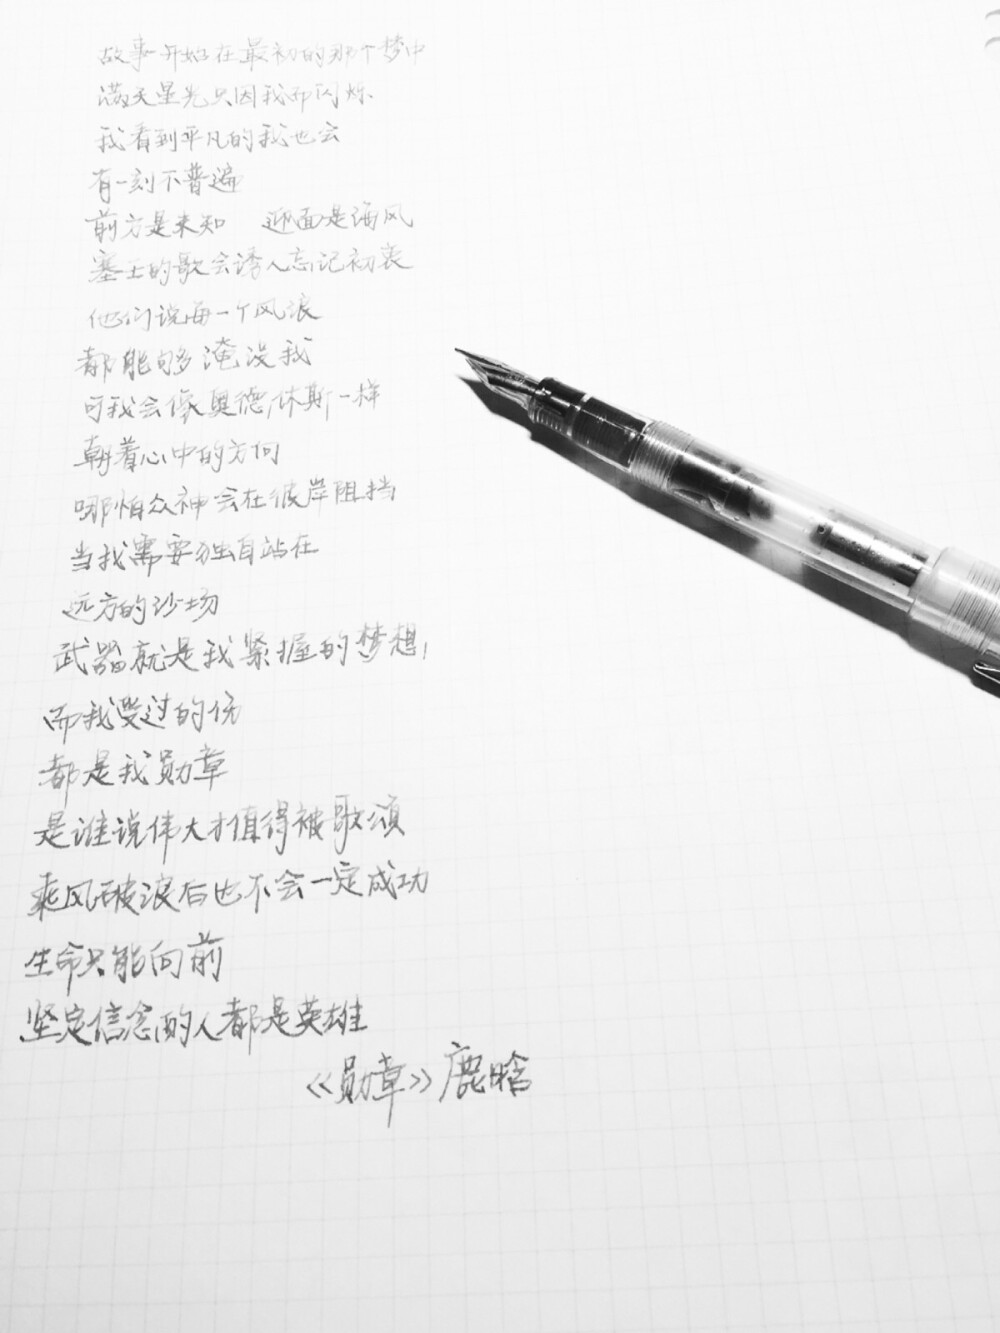 故事开始在最初的那个梦中
满天星光只因我而闪烁
我看到平凡的我也会
有一刻不普遍
前方是未知　迎面是海风
塞壬的歌会诱人忘记初衷
他们说每一个风浪
都能够淹没我
可我会像奥德休斯一样
朝着心中的方向
哪怕众神会在彼岸阻挡
当我需要独自站在
远方的沙场
武器就是我紧握的梦想，
而我受过的伤
都是我勋章
是谁说伟大才值得被歌颂
乘风破浪后也不会一定成功
生命只能向前
坚定信念的人都是英雄
《勋章》鹿晗